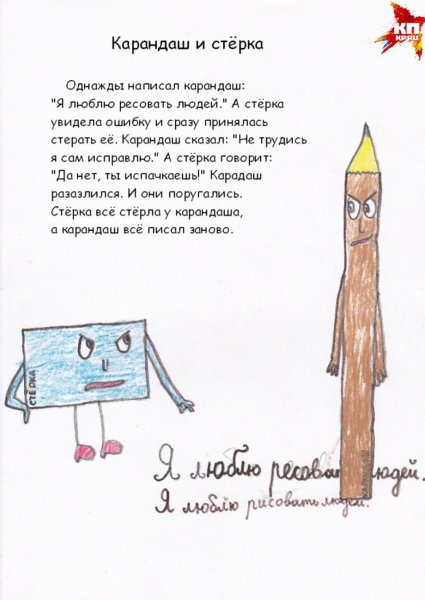 КП
KP.RU
Карандаш и стёрка
Однажды написал карандаш:
"Я люблю ресовать людей." А стёрка
увидела ошибку и сразу принялась
стерать её. Карандаш сказал: "Не трудись
я сам исправлю." А стёрка говорит:
"Да нет, ты испачкаешь!" Карадаш
разазлился. И они поругались.
Стёрка всё стёрла у карандаша,
а карандаш всё писал заново.
СТЁРКА
Я люблю ресова людей.
Я люблю рисовать людей.